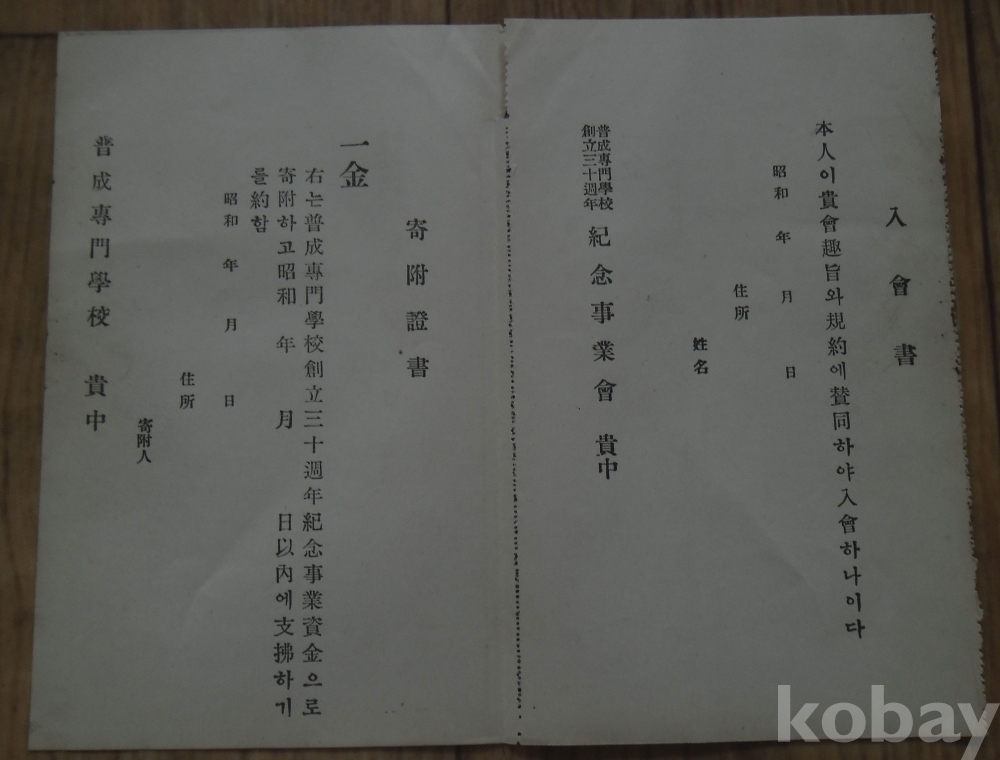 入會書
本人이貴會趣旨와規約에贊同하야入會하나이다
昭和 年 月 日
住所
姓名
普成專門學校
創立三十週年
紀念事業會 貴中
寄附證書
一金
右는普成專門學校創立三十週年紀念事業資金으로
寄附하고昭和 年 月 日以內에支拂하기
를約함
昭和 年 月 日
住所
寄附人
普成專門學校 貴中
kobay